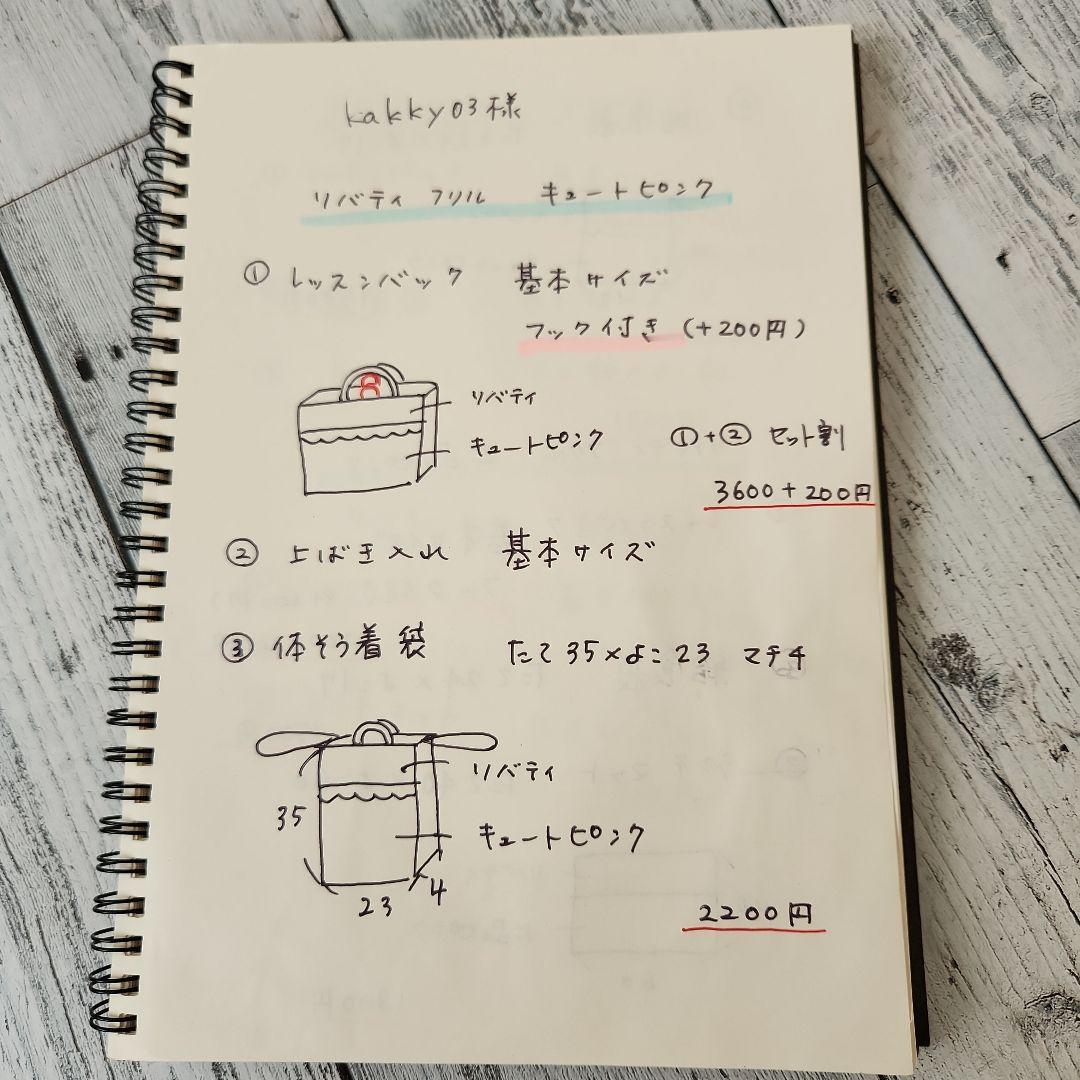 kakky03様
リバティ フリル キュートピンク
① レッスンバック 基本サイズ
フック付き (+200円)
リバティ
キュートピンク
①+② セット割
3600+200円
② 上ばき入れ 基本サイズ
③ 体そう着袋 たて35×よこ23 マチ4
リバティ
35
キュートピンク
23
4
2200円